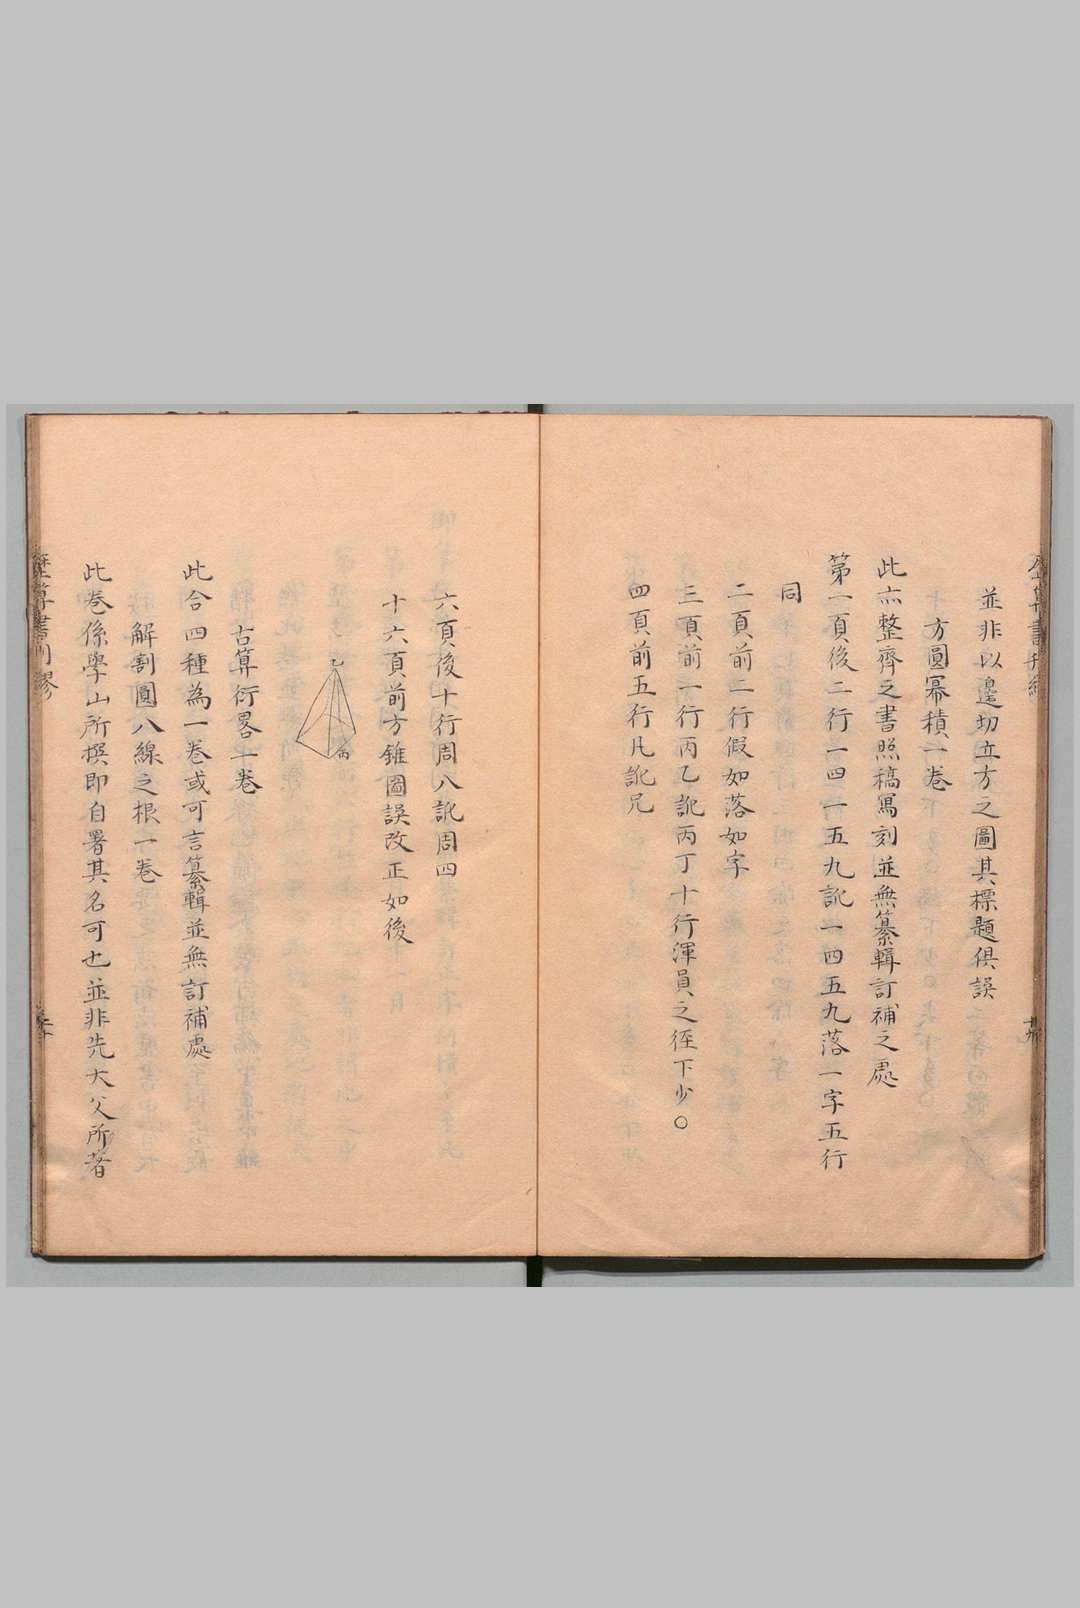 並非以邊切立方之圖其標題俱誤
方圓冪積一卷
此亦整齊之書照稿寫刻並無纂輯訂補之處
第一頁後二行一四一五九訛一四五九落一字五行
同
二頁前二行假如落如字
三頁前一行丙乙訛丙丁十行渾員之徑下少〇
四頁前五行凡訛兄
六頁後十行周八訛周四
十六頁前方錐圖誤改正如後
乙
丙
古算衍畧一卷
此合四種為一卷或可言纂輯並無訂補處
解割圓八線之根一卷
此卷係學山所撰即自署其名可也並非先大父所著
歷算書刊謬